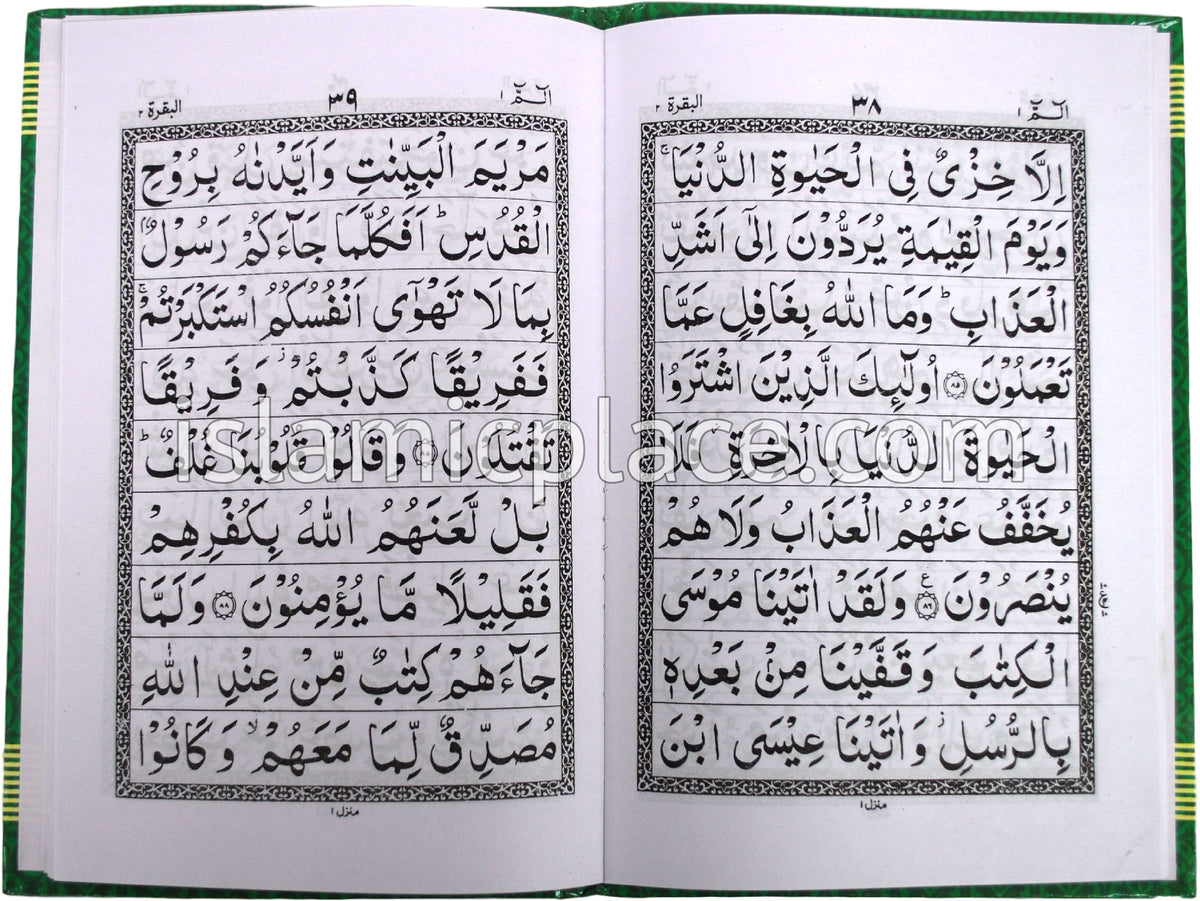 الٓـمّٓ ١
٣٨
البقرة ٢
اِلَّا خِزْىٌ فِى الْحَيٰوةِ الدُّنْيَا ۚ
وَيَوْمَ الْقِيٰمَةِ يُرَدُّوْنَ اِلٰٓى اَشَدِّ
الْعَذَابِ ؕ وَمَا اللّٰهُ بِغَافِلٍ عَمَّا
تَعْمَلُوْنَ ۝٨٥ اُولٰٓئِكَ الَّذِيْنَ اشْتَرَوُا
الْحَيٰوةَ الدُّنْيَا بِالْاٰخِرَةِ ؗ فَلَا
يُخَفَّفُ عَنْهُمُ الْعَذَابُ وَلَا هُمْ
يُنْصَرُوْنَ ۝٨٦ ع وَلَقَدْ اٰتَيْنَا مُوْسَى
الْكِتٰبَ وَقَفَّيْنَا مِنْۢ بَعْدِهٖ
بِالرُّسُلِ ؗ وَاٰتَيْنَا عِيْسَى ابْنَ
منزل ١
الٓـمّٓ ١
٣٩
البقرة ٢
مَرْيَمَ الْبَيِّنٰتِ وَاَيَّدْنٰهُ بِرُوْحِ
الْقُدُسِ ؕ اَفَكُلَّمَا جَآءَكُمْ رَسُوْلٌۢ
بِمَا لَا تَهْوٰٓى اَنْفُسُكُمُ اسْتَكْبَرْتُمْ ۚ
فَفَرِيْقًا كَذَّبْتُمْ ؗ وَفَرِيْقًا
تَقْتُلُوْنَ ۝٨٧ وَقَالُوْا قُلُوْبُنَا غُلْفٌ ؕ
بَلْ لَّعَنَهُمُ اللّٰهُ بِكُفْرِهِمْ
فَقَلِيْلًا مَّا يُؤْمِنُوْنَ ۝٨٨ وَلَمَّا
جَآءَهُمْ كِتٰبٌ مِّنْ عِنْدِ اللّٰهِ
مُصَدِّقٌ لِّمَا مَعَهُمْ ۙ وَكَانُوْا
منزل ١
islamicplace.com